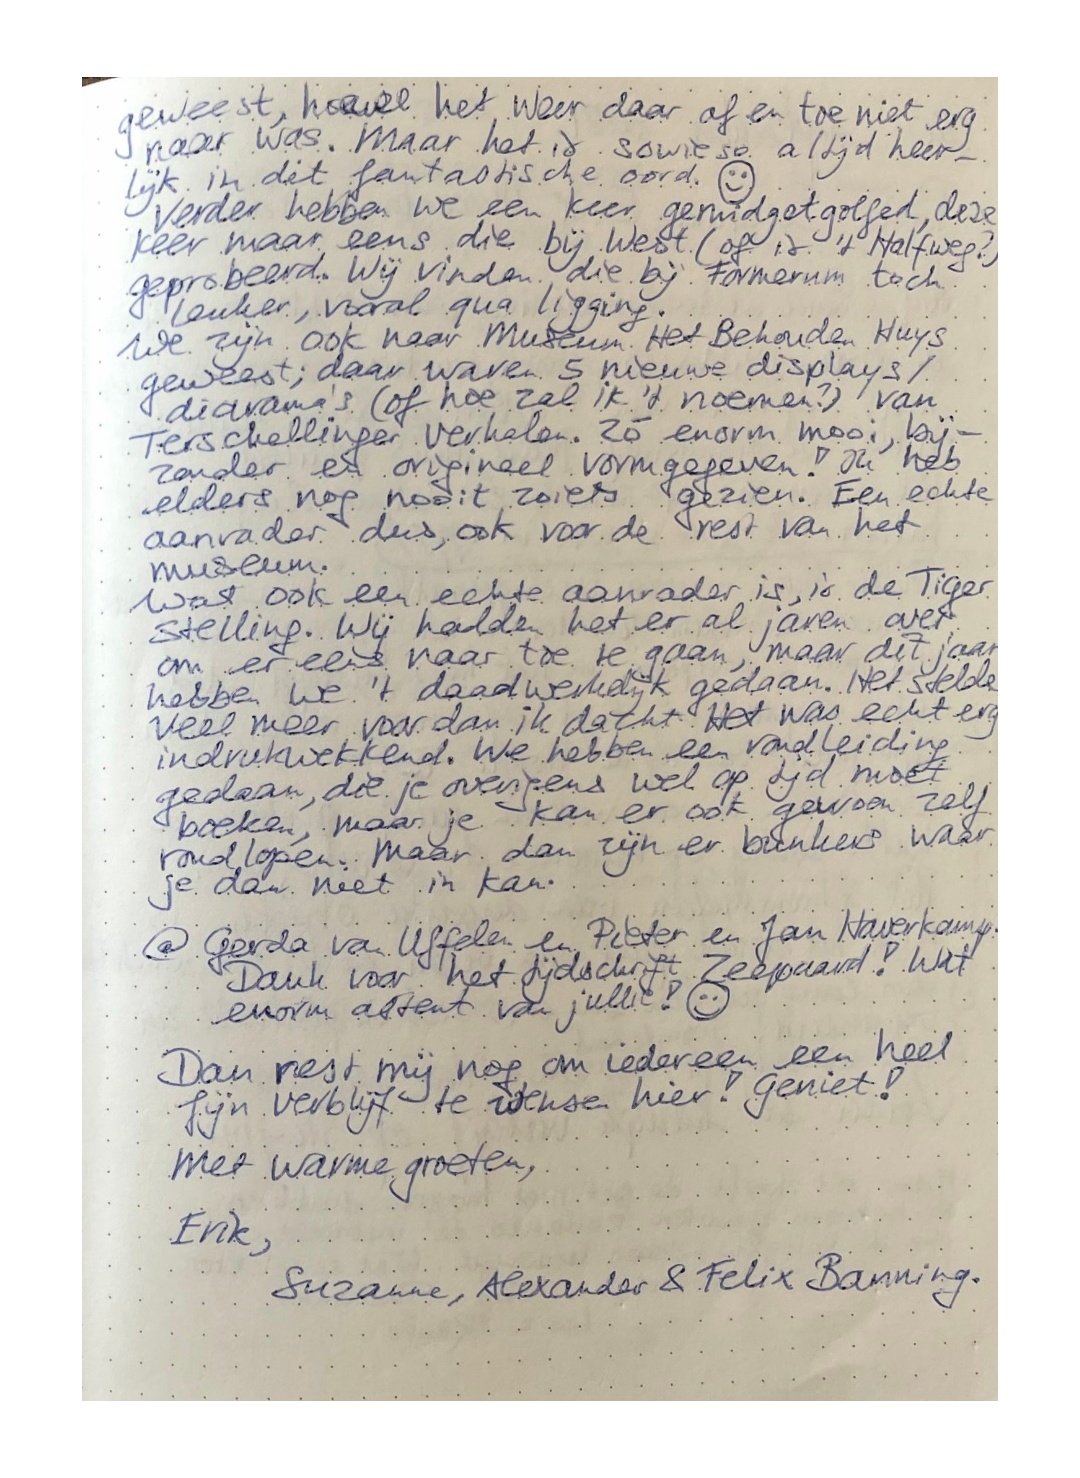 geweest, hoewel het weer daar af en toe niet erg
naar was. Maar het is sowieso altijd heer-
lijk in dit fantastische oord. ☺
Verder hebben we een keer gemidgetgolfed, deze
keer maar eens die bij West (of is 't Halfweg?)
geprobeerd. Wij vinden die bij Formerum toch
leuker, vooral qua ligging.
We zijn ook naar Museum Het Behouden Huys
geweest; daar waren 5 nieuwe displays/
diarama's (of hoe zal ik 't noemen?) van
Terschellinger verhalen. Zó enorm mooi, bij-
zonder en origineel vormgegeven! Ik heb
elders nog nooit zoiets gezien. Een echte
aanrader dus, ook voor de rest van het
museum.
Wat ook een echte aanrader is, is de Tiger
stelling. Wij hadden het er al jaren over
om er eens naar toe te gaan, maar dit jaar
hebben we 't daadwerkelijk gedaan. Het stelde
veel meer voor dan ik dacht. Het was echt erg
indrukwekkend. We hebben een rondleiding
gedaan, die je overigens wel op tijd moet
boeken, maar je kan er ook gewoon zelf
rondlopen. Maar dan zijn er bunkers waar
je dan niet in kan.
@ Gerda van Uffelen en Pieter en Jan Haverkamp.
Dank voor het tijdschrift Zeepaard! Wat
enorm attent van jullie! ☺
Dan rest mij nog om iedereen een heel
fijn verblijf te wensen hier! Geniet!
Met warme groeten,
Erik,
Suzanne, Alexander & Felix Banning.